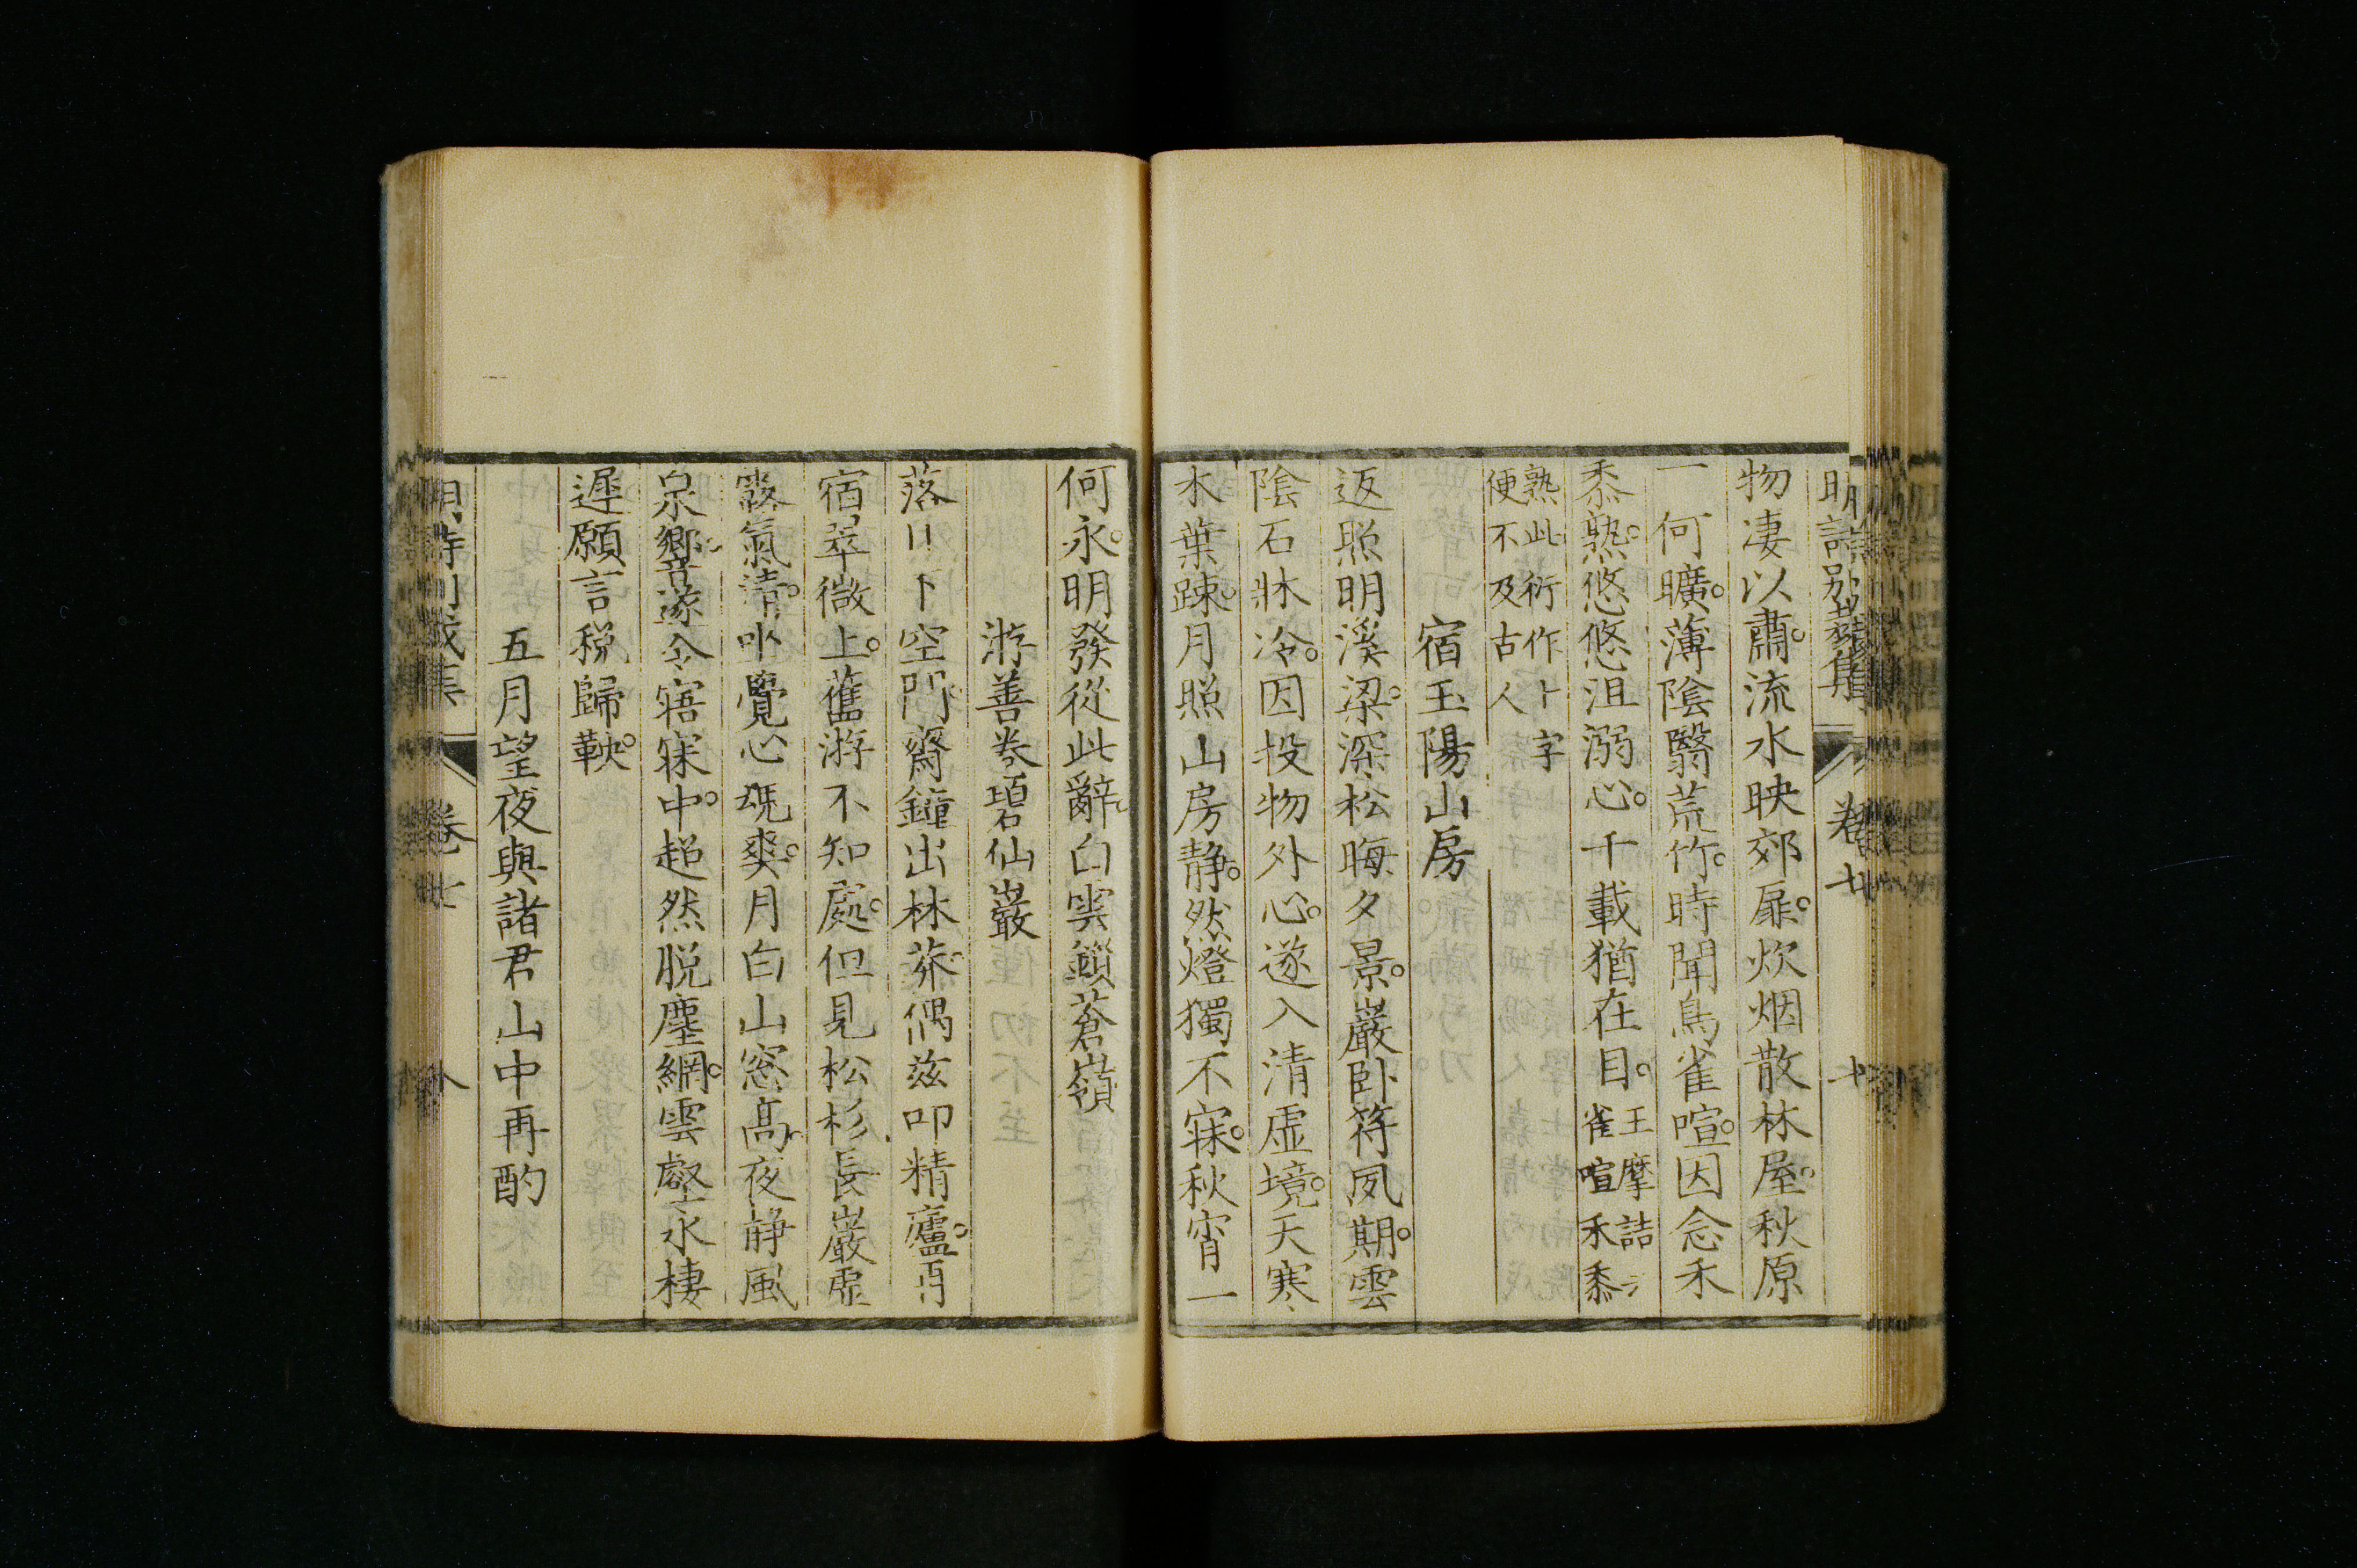 明詩別裁集 卷七 十
物淒以肅。流水映郊扉。炊烟散林屋。秋原
一何曠。薄陰翳荒竹。時聞鳥雀喧。因念禾
黍熟。悠悠沮溺心。千載猶在目。王摩詰云
雀喧禾黍
熟此衍作十字
便不及古人
宿玉陽山房
返照明溪梁。深松晦夕景。巖卧符夙期。雲
陰石牀冷。因投物外心。遂入清虛境。天寒
木葉疎。月照山房静。然燈獨不寐。秋宵一
何永。明發從此辭。白雲鎖蒼嶺
游善卷碧仙巖
落日下空門。齋鐘出林莽。偶兹叩精廬。再
宿翠微上。舊游不知處。但見松杉長。巖虛
露氣清。坐覺心既爽。月白山窓高。夜静風
泉響。遂令寤寐中。超然脱塵網。雲壑永棲
遲。願言税歸鞅。
五月望夜與諸君山中再酌
明詩別裁集 卷七